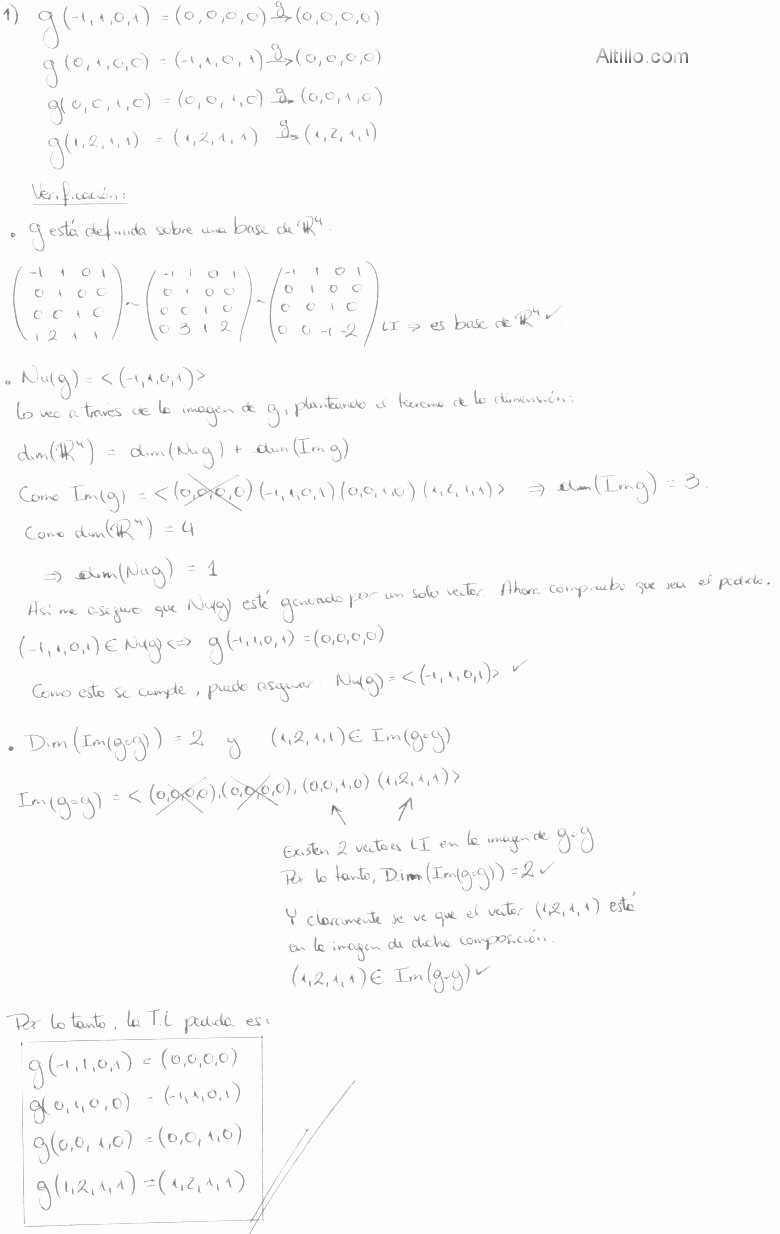 1) g(-1,1,0,1) = (0,0,0,0) →g (0,0,0,0)
Altillo.com
g(0,1,0,0) = (-1,1,0,1) →g (0,0,0,0)
g(0,0,1,0) = (0,0,1,0) →g (0,0,1,0)
g(1,2,1,1) = (1,2,1,1) →g (1,2,1,1)
Verificación:
• g está definida sobre una base de ℝ⁴.
(-1 1 0 1) (-1 1 0 1) (-1 1 0 1)
(0 1 0 0) (0 1 0 0) (0 1 0 0)
(0 0 1 0) ~ (0 0 1 0) ~ (0 0 1 0)
(1 2 1 1) (0 3 1 2) (0 0 -1 -2) LI ⇒ es base de ℝ⁴ ✓
• Nu(g) = <(-1,1,0,1)>
Lo veo a través de la imagen de g, planteando el teorema de la dimensión:
dim(ℝ⁴) = dim(Nu g) + dim(Im g)
Como Im(g) = <(0,0,0,0) (-1,1,0,1) (0,0,1,0) (1,2,1,1)> ⇒ dim(Im g) = 3.
Como dim(ℝ⁴) = 4
⇒ dim(Nu g) = 1
Así me aseguro que Nu(g) esté generado por un solo vector. Ahora compruebo que sea el pedido.
(-1,1,0,1) ∈ Nu(g) <=> g(-1,1,0,1) = (0,0,0,0)
Como esto se cumple, puedo asegurar Nu(g) = <(-1,1,0,1)> ✓
• Dim(Im(g∘g)) = 2 y (1,2,1,1) ∈ Im(g∘g)
Im(g∘g) = <(0,0,0,0), (0,0,0,0), (0,0,1,0) (1,2,1,1)>
Existen 2 vectores LI en la imagen de g∘g
Por lo tanto, Dim(Im(g∘g)) = 2 ✓
Y claramente se ve que el vector (1,2,1,1) está
en la imagen de dicha composición.
(1,2,1,1) ∈ Im(g∘g) ✓
Por lo tanto, la T.L pedida es:
g(-1,1,0,1) = (0,0,0,0)
g(0,1,0,0) = (-1,1,0,1)
g(0,0,1,0) = (0,0,1,0)
g(1,2,1,1) = (1,2,1,1)